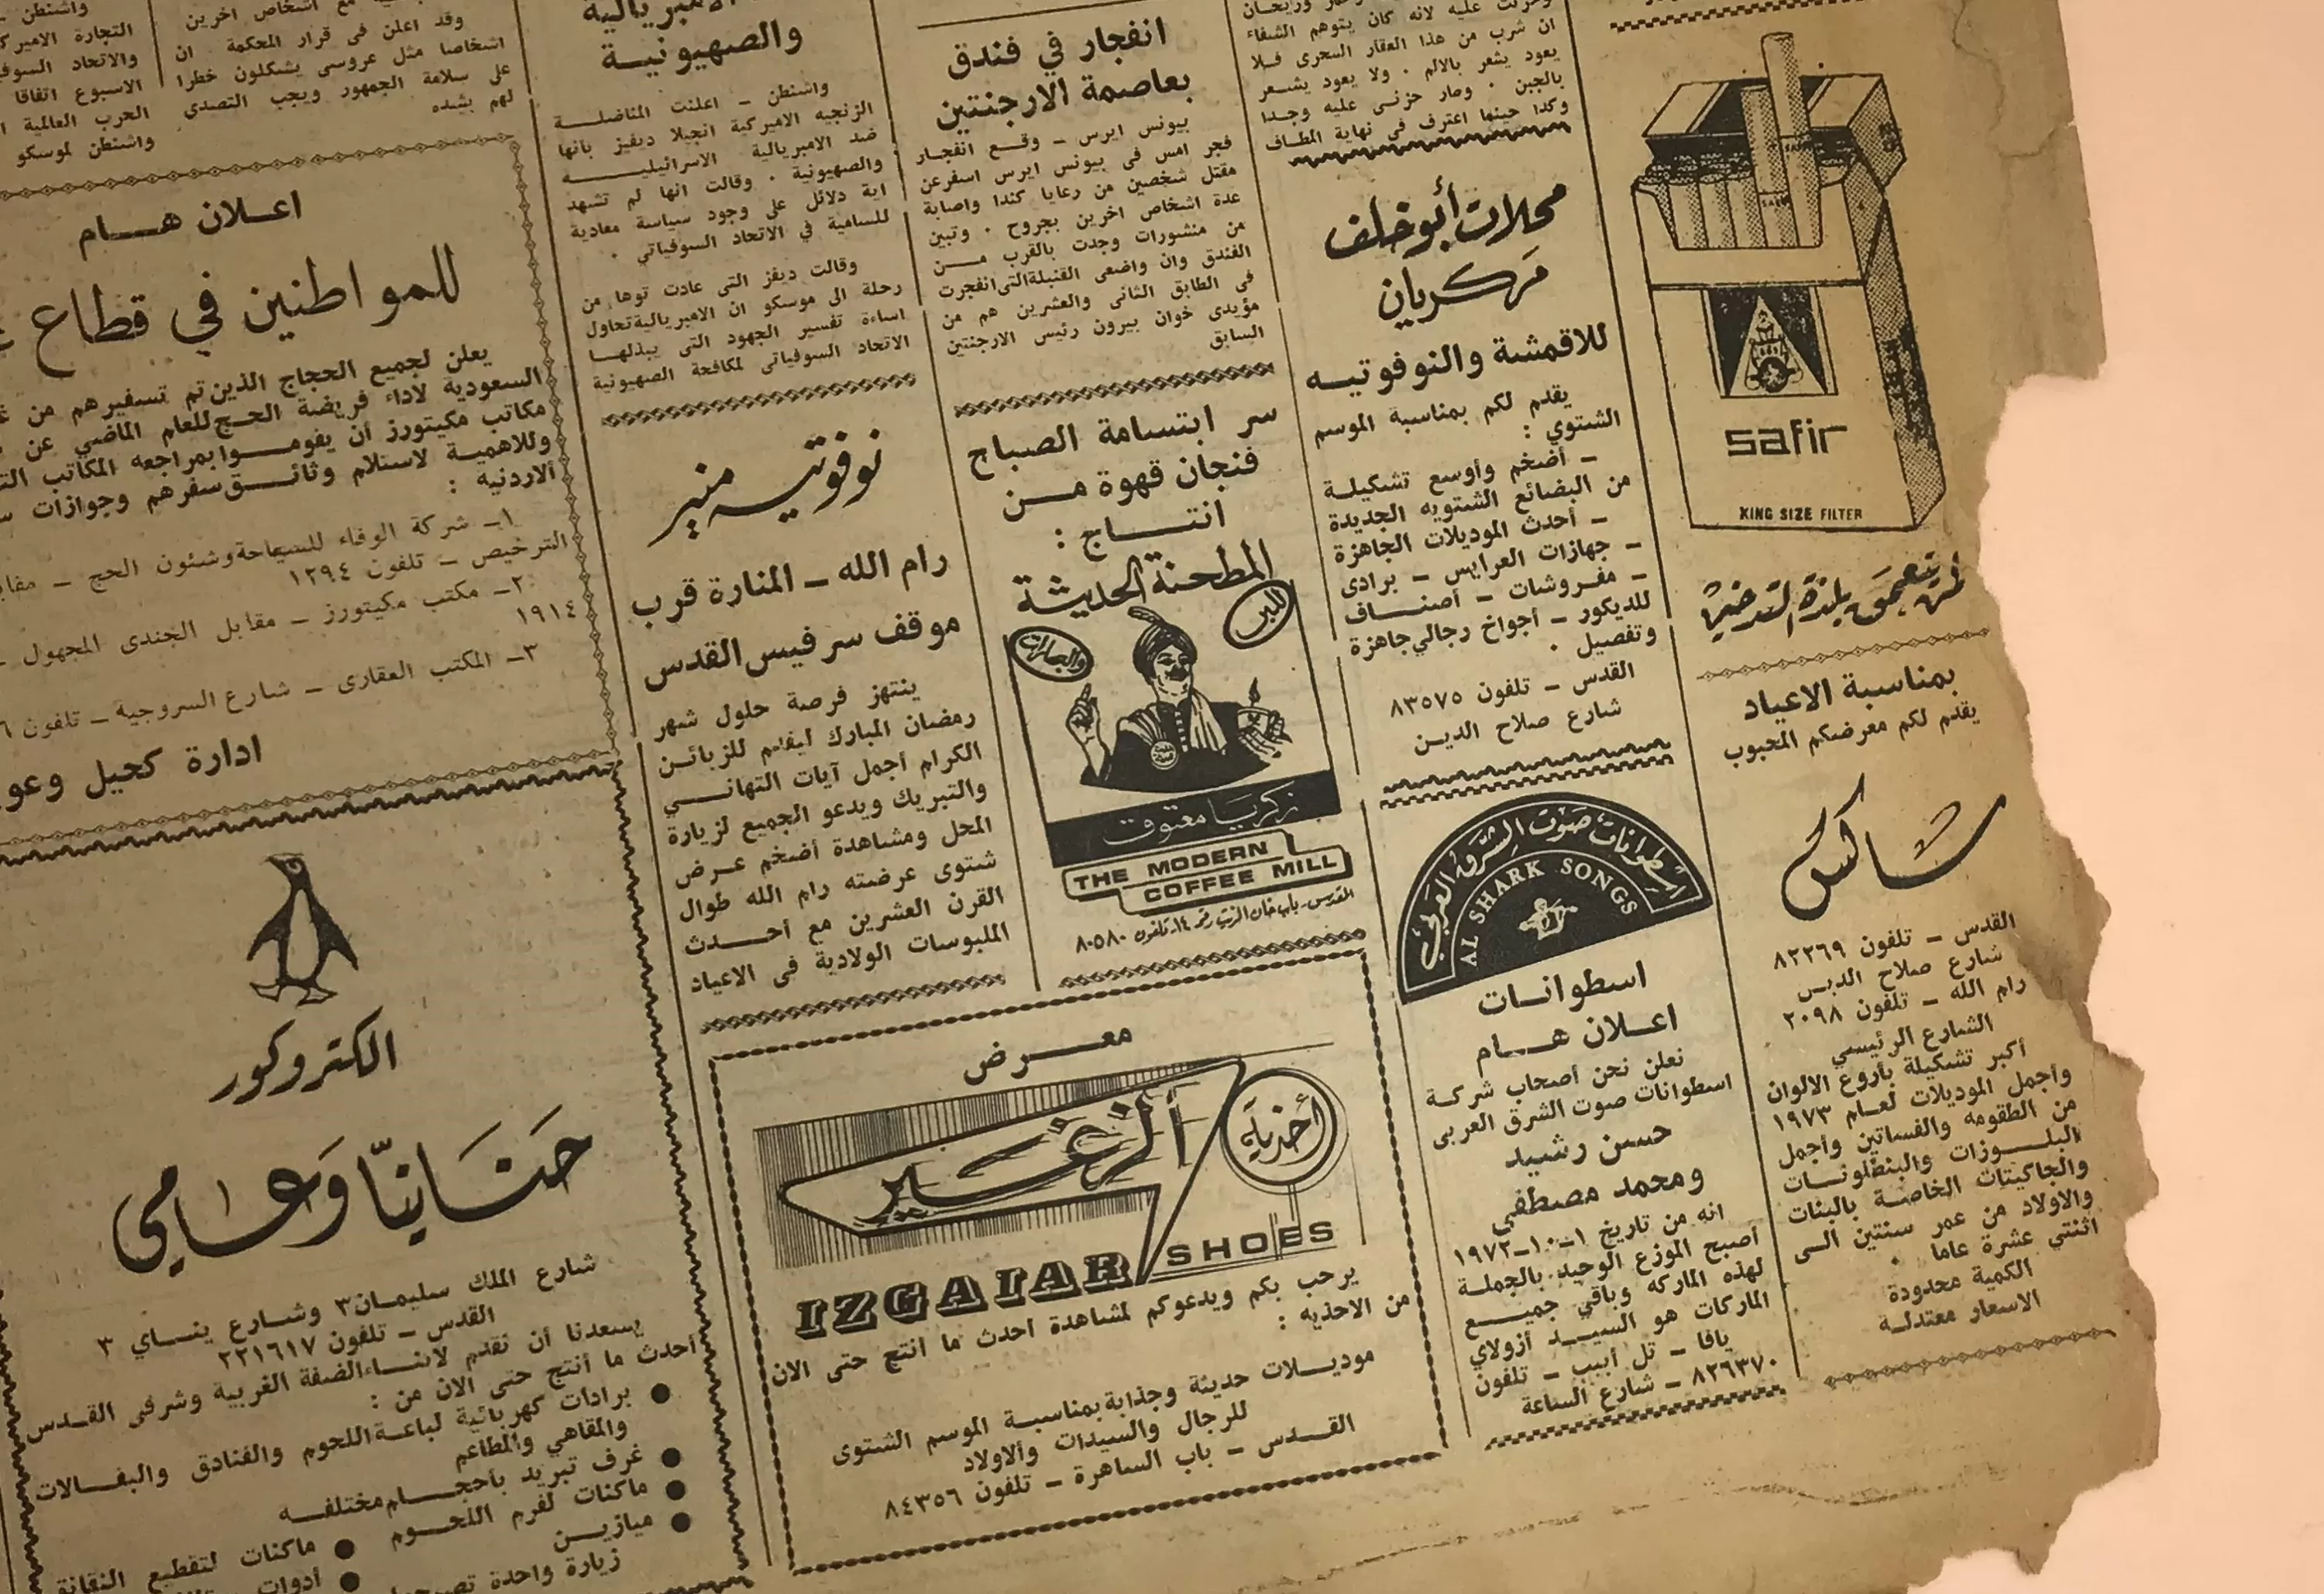 SAFIR
safir
KING SIZE FILTER
لمن يتعمق بلذة التدخين
بمناسبة الاعياد
يقدم لكم معرضكم المحبوب
شاكس
القدس – تلفون ٨٢٢٦٩
شارع صلاح الدين
رام الله – تلفون ٢٠٩٨
الشارع الرئيسي
أكبر تشكيلة بأروع الالوان
وأجمل الموديلات لعام ١٩٧٣
من الطقومه والفساتين وأجمل
البلوزات والبنطلونات
والجاكيتات الخاصة بالبنات
والاولاد من عمر سنتين الى
اثنتي عشرة عاما .
الكمية محدودة
الاسعار معتدلة
عليه لانه كان يتوهم الشفاء
ان شرب من هذا العقار السحرى فلا
يعود يشعر بالالم . ولا يعود يشعر
بالجبن . وصار حزنى عليه وجدا
وكدا حينها اعترف في نهاية المطاف
محلات أبو خلف
مركريان
للاقمشة والنوفوتيه
يقدم لكم بمناسبة الموسم
الشتوي :
– أضخم وأوسع تشكيلة
من البضائع الشتويه الجديدة
– أحدث الموديلات الجاهزة
– جهازات العرايس – برادى
– مفروشات – أصناف
للديكور – أجواخ رجالي جاهزة
وتفصيل .
القدس – تلفون ٨٣٥٧٥
شارع صلاح الدين
اسطوانات صوت الشرق العربي
AL SHARK SONGS
اسطوانات
اعلان هام
نعلن نحن أصحاب شركة
اسطوانات صوت الشرق العربى
حسن رشيد
ومحمد مصطفى
انه من تاريخ ١–١٠–١٩٧٢
أصبح الموزع الوحيد بالجملة
لهذه الماركه وباقي جميع
الماركات هو السيد أزولاي
يافا – تل أبيب – تلفون
٨٢٦٣٧٠ – شارع الساعة
انفجار في فندق
بعاصمة الارجنتين
بيونس ايرس – وقع انفجار
فجر امس فى بيونس ايرس اسفر عن
مقتل شخصين من رعايا كندا واصابة
عدة اشخاص اخرين بجروح . وتبين
من منشورات وجدت بالقرب من
الفندق وان واضعى القنبلة التى انفجرت
فى الطابق الثانى والعشرين هم من
مؤيدى خوان بيرون رئيس الارجنتين
السابق
سر ابتسامة الصباح
فنجان قهوة من
انتاج :
المطحنة الحديثة
للبن
والبهارات
زكريا معتوق
THE MODERN
COFFEE MILL
القدس – باب خان الزيت رقم ١٤ – تلفون ٨٠٥٨٠
والصهيونية
واشنطن – اعلنت المناضلة
الزنجيه الاميركية انجيلا ديفيز بانها
ضد الامبريالية الاسرائيليه
والصهيونية . وقالت انها لم تشهد
اية دلائل على وجود سياسة معادية
للسامية في الاتحاد السوفياتي .
وقالت ديفز التى عادت توها من
رحلة الى موسكو ان الامبريالية تحاول
اساءة تفسير الجهود التى يبذلها
الاتحاد السوفياتى لمكافحة الصهيونية
نوفوتيه منير
رام الله – المنارة قرب
موقف سرفيس القدس
ينتهز فرصة حلول شهر
رمضان المبارك ليقدم للزبائن
الكرام أجمل آيات التهاني
والتبريك ويدعو الجميع لزيارة
المحل ومشاهدة أضخم عرض
شتوى عرضته رام الله طوال
القرن العشرين مع أحدث
الملبوسات الولادية في الاعياد
معرض
أحذية
ألزغير
IZGAIAR SHOES
يرحب بكم ويدعوكم لمشاهدة احدث ما انتج حتى الان
من الاحذيه :
موديلات حديثة وجذابة بمناسبة الموسم الشتوى
للرجال والسيدات وألاولاد
القدس – باب الساهرة – تلفون ٨٤٣٥٦
مع اشخاص اخرين
وقد اعلن فى قرار المحكمة ان
اشخاصا مثل عروسى يشكلون خطرا
على سلامة الجمهور ويجب التصدى
لهم بشده
واشنطن –
التجارة الاميرك
والاتحاد السوف
الاسبوع اتفاقا
الحرب العالمية
واشنطن لموسكو
اعلان هام
للمواطنين في قطاع
يعلن لجميع الحجاج الذين تم تسفيرهم من
السعودية لاداء فريضة الحج للعام الماضي عن
مكاتب مكيتورز أن يقوموا بمراجعه المكاتب
وللاهمية لاستلام وثائق سفرهم وجوازات
الاردنيه :
١– شركة الوفاء للسياحة وشئون الحج –
الترخيص – تلفون ١٢٩٤
٢– مكتب مكيتورز – مقابل الجندى المجهول –
١٩١٤
٣– المكتب العقارى – شارع السروجية – تلفون
ادارة كحيل
الكتروكور
حنانيا وعامي
شارع الملك سليمان ٣ وشارع يناي ٣
القدس – تلفون ٢٢١٦١٧
يسعدنا أن نقدم لابناء الضفة الغربية وشرقى القدس
أحدث ما أنتج حتى الان من :
● برادات كهربائية لباعة اللحوم والفنادق والبقالات
والمقاهي والمطاعم
● غرف تبريد بأحجام مختلفه
● ماكنات لفرم اللحوم
● ميازين
● ماكنات لتقطيع النقانق
● أدوات
زيارة واحدة